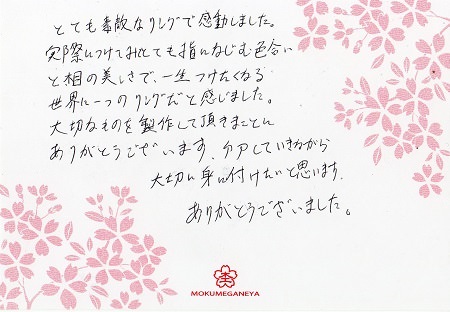 とても素敵なリングで感動しました。
実際につけてみてとても指になじむ色合い
と相の美しさで、一生つけたくなる
世界に一つのリングだと感じました。
大切なものを製作して頂きまことに
ありがとうございます、ケアしていきながら
大切に身に付けたいと思います。
ありがとうございました。
MOKUMEGANEYA